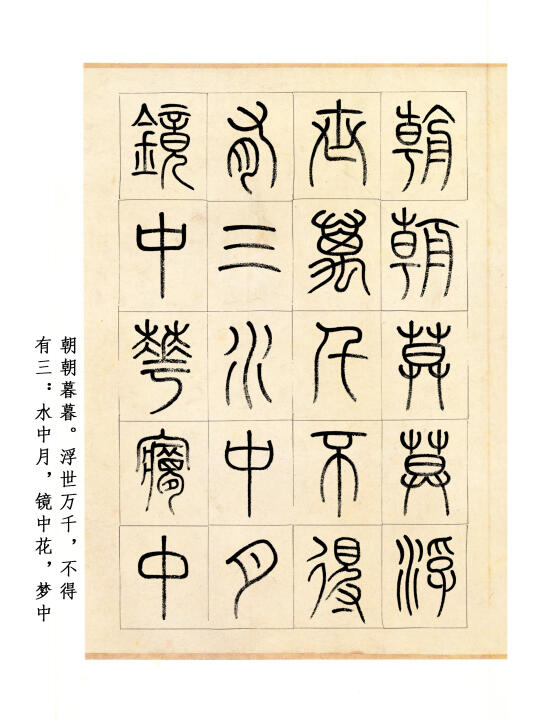 朝朝莫莫浮
世萬千不得
有三水中月
鏡中華㝱中
朝朝暮暮。浮世万千，不得
有三：水中月，镜中花，梦中